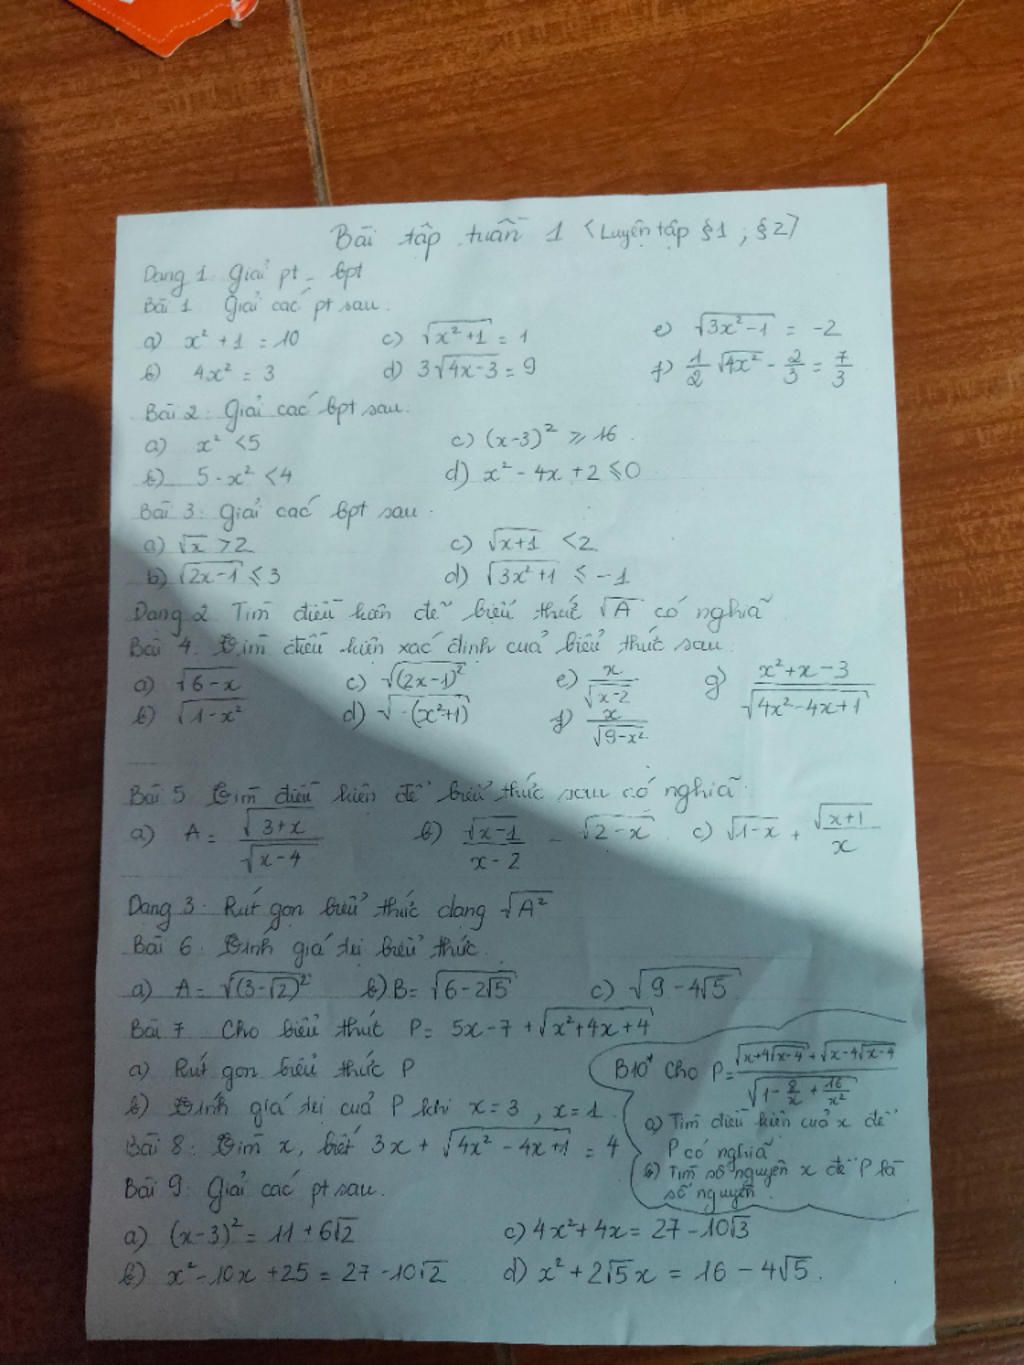 Bài tập tuần 1 (Luyện tập §1 ; §2)
Dạng 1: Giải pt - bpt
Bài 1 Giải các pt sau:
a) x² + 1 = 10 c) √(x²+1) = 1 e) √(3x²-1) = -2
b) 4x² = 3 d) 3√(4x-3) = 9 f) 1/2 √(4x²) - 2/3 = 7/3
Bài 2: Giải các bpt sau:
a) x² < 5 c) (x-3)² ≥ 16
b) 5 - x² < 4 d) x² - 4x + 2 ≤ 0
Bài 3: Giải các bpt sau:
a) √x > 2 c) √(x+1) < 2
b) √(2x-1) ≤ 3 d) √(3x²+1) ≤ -1
Dạng 2 Tìm điều kiện để biểu thức √A có nghĩa
Bài 4: Tìm điều kiện xác định của biểu thức sau:
a) √(6-x) c) √((2x-1)²) e) x/√(x-2) g) (x²+x-3)/√(4x²-4x+1)
b) √(1-x²) d) √(-(x²+1)) f) x/√(9-x²)
Bài 5 Tìm điều kiện để biểu thức sau có nghĩa:
a) A = √(3+x)/√(x-4) b) √(x-1)/(x-2) - √(2-x) c) √(1-x) + √(x+1)/x
Dạng 3: Rút gọn biểu thức dạng √A²
Bài 6: Tính giá trị biểu thức.
a) A = √((3-√2)²) b) B = √(6-2√5) c) √(9-4√5)
Bài 7 Cho biểu thức P = 5x-7 + √(x²+4x+4)
a) Rút gọn biểu thức P
b) Tính giá trị của P khi x = 3, x = 1
Bài 8: Tìm x, biết 3x + √(4x²-4x+1) = 4
Bài 9: Giải các pt sau.
a) (x-3)² = 11 + 6√2 c) 4x² + 4x = 27 - 10√3
b) x² - 10x + 25 = 27 - 10√2 d) x² + 2√5x = 16 - 4√5.
B10* Cho P = (√(x+4√(x-4)) + √(x-4√(x-4)))/√(1 - 8/x + 16/x²)
a) Tìm điều kiện của x để
P có nghĩa
b) Tìm số nguyên x để P là
số nguyên.